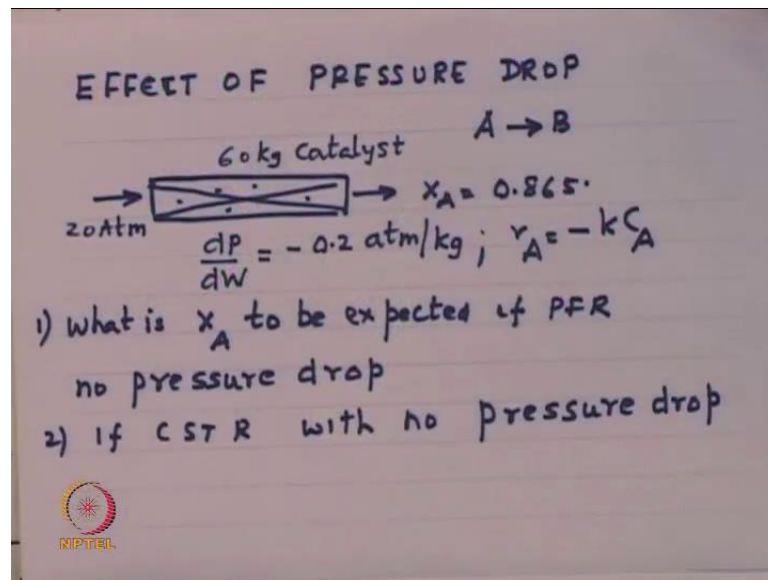 EFFECT OF PRESSURE DROP
A → B
60 kg Catalyst
20 Atm
x_A = 0.865.
dP/dW = - 0.2 atm/kg ; r_A = - k C_A
1) What is x_A to be expected if PFR
no pressure drop
2) If CSTR with no pressure drop
NPTEL